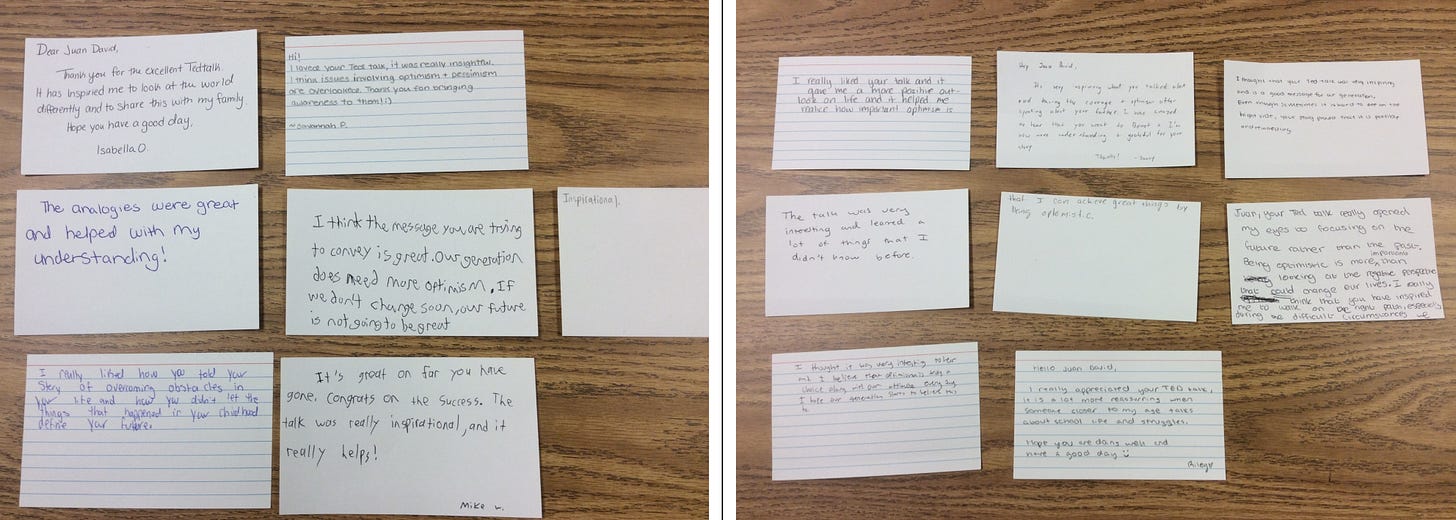 Dear Juan David,
Thank you for the excellent Tedtalk.
It has inspired me to look at the world
differently and to share this with my family.
Hope you have a good day.
Isabella O.
Hi!
I loved your Ted talk, it was really insightful.
I think issues involving optimism + pessimism
are overlooked. Thank you for bringing
awareness to them! :)
~Savannah P.
The analogies were great
and helped with my
understanding!
I think the message you are trying
to convey is great. Our generation
does need more optimism. If
we don't change soon, our future
is not going to be great
Inspirational.
I really liked how you told your
story of overcoming obstacles in
your life and how you didn't let the
things that happened in your childhood
define your future.
It's great on far you have
gone, Congrats on the success. The
talk was really inspirational, and it
really helps!
Mike W.
I really liked your talk and it
gave me a more positive out-
look on life and it helped me
realize how important optimism is
Hey Juan David,
It's very inspiring what you talked about
and having the courage + optimism after
about your father. I was
to hear that you went to + I'm
now more understanding + grateful for your
story
Thanks!
I thought that your Ted talk was very inspiring
and is a good message for our generation.
Even though sometimes it is hard to see on the
bright side, your story proves that it is possible
and rewarding.
The talk was very
interesting and learned a
lot of things that I
didn't know before.
that I can achieve great things by
being optimistic.
Juan, your Ted talk really opened
my eyes to focusing on the
future rather than the past.
Being optimistic is more important than
looking at the negative perspective
that could change our lives. I really
think that you have inspired
me to walk on the right path, especially
during the difficult circumstances we
I thought it was very interesting to hear
and I believe that optimism is truly a
choice along with our attitude every day
I hope our generation starts to believe this
to
Hello Juan David,
I really appreciated your TED talk,
it is a lot more reassurring when
someone closer to my age talks
about school life and struggles.
Hope you are doing well and
have a good day
Riley